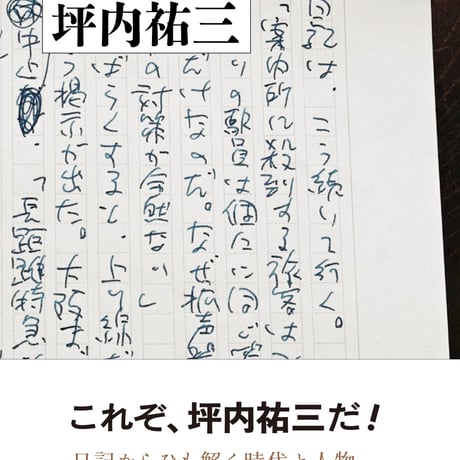 坪内祐三
日記は、こう続いて行く。
「案内所に殺到する旅客は
りの駅員は個々に同じ
だけなのだ。なぜ拡声器
の対策が全然ない」
ばらくすると、上り線だ
う掲示が出た。大阪ま
中止
。「長距離特急
これぞ、坪内祐三だ!
日記からひも解く時代と人物